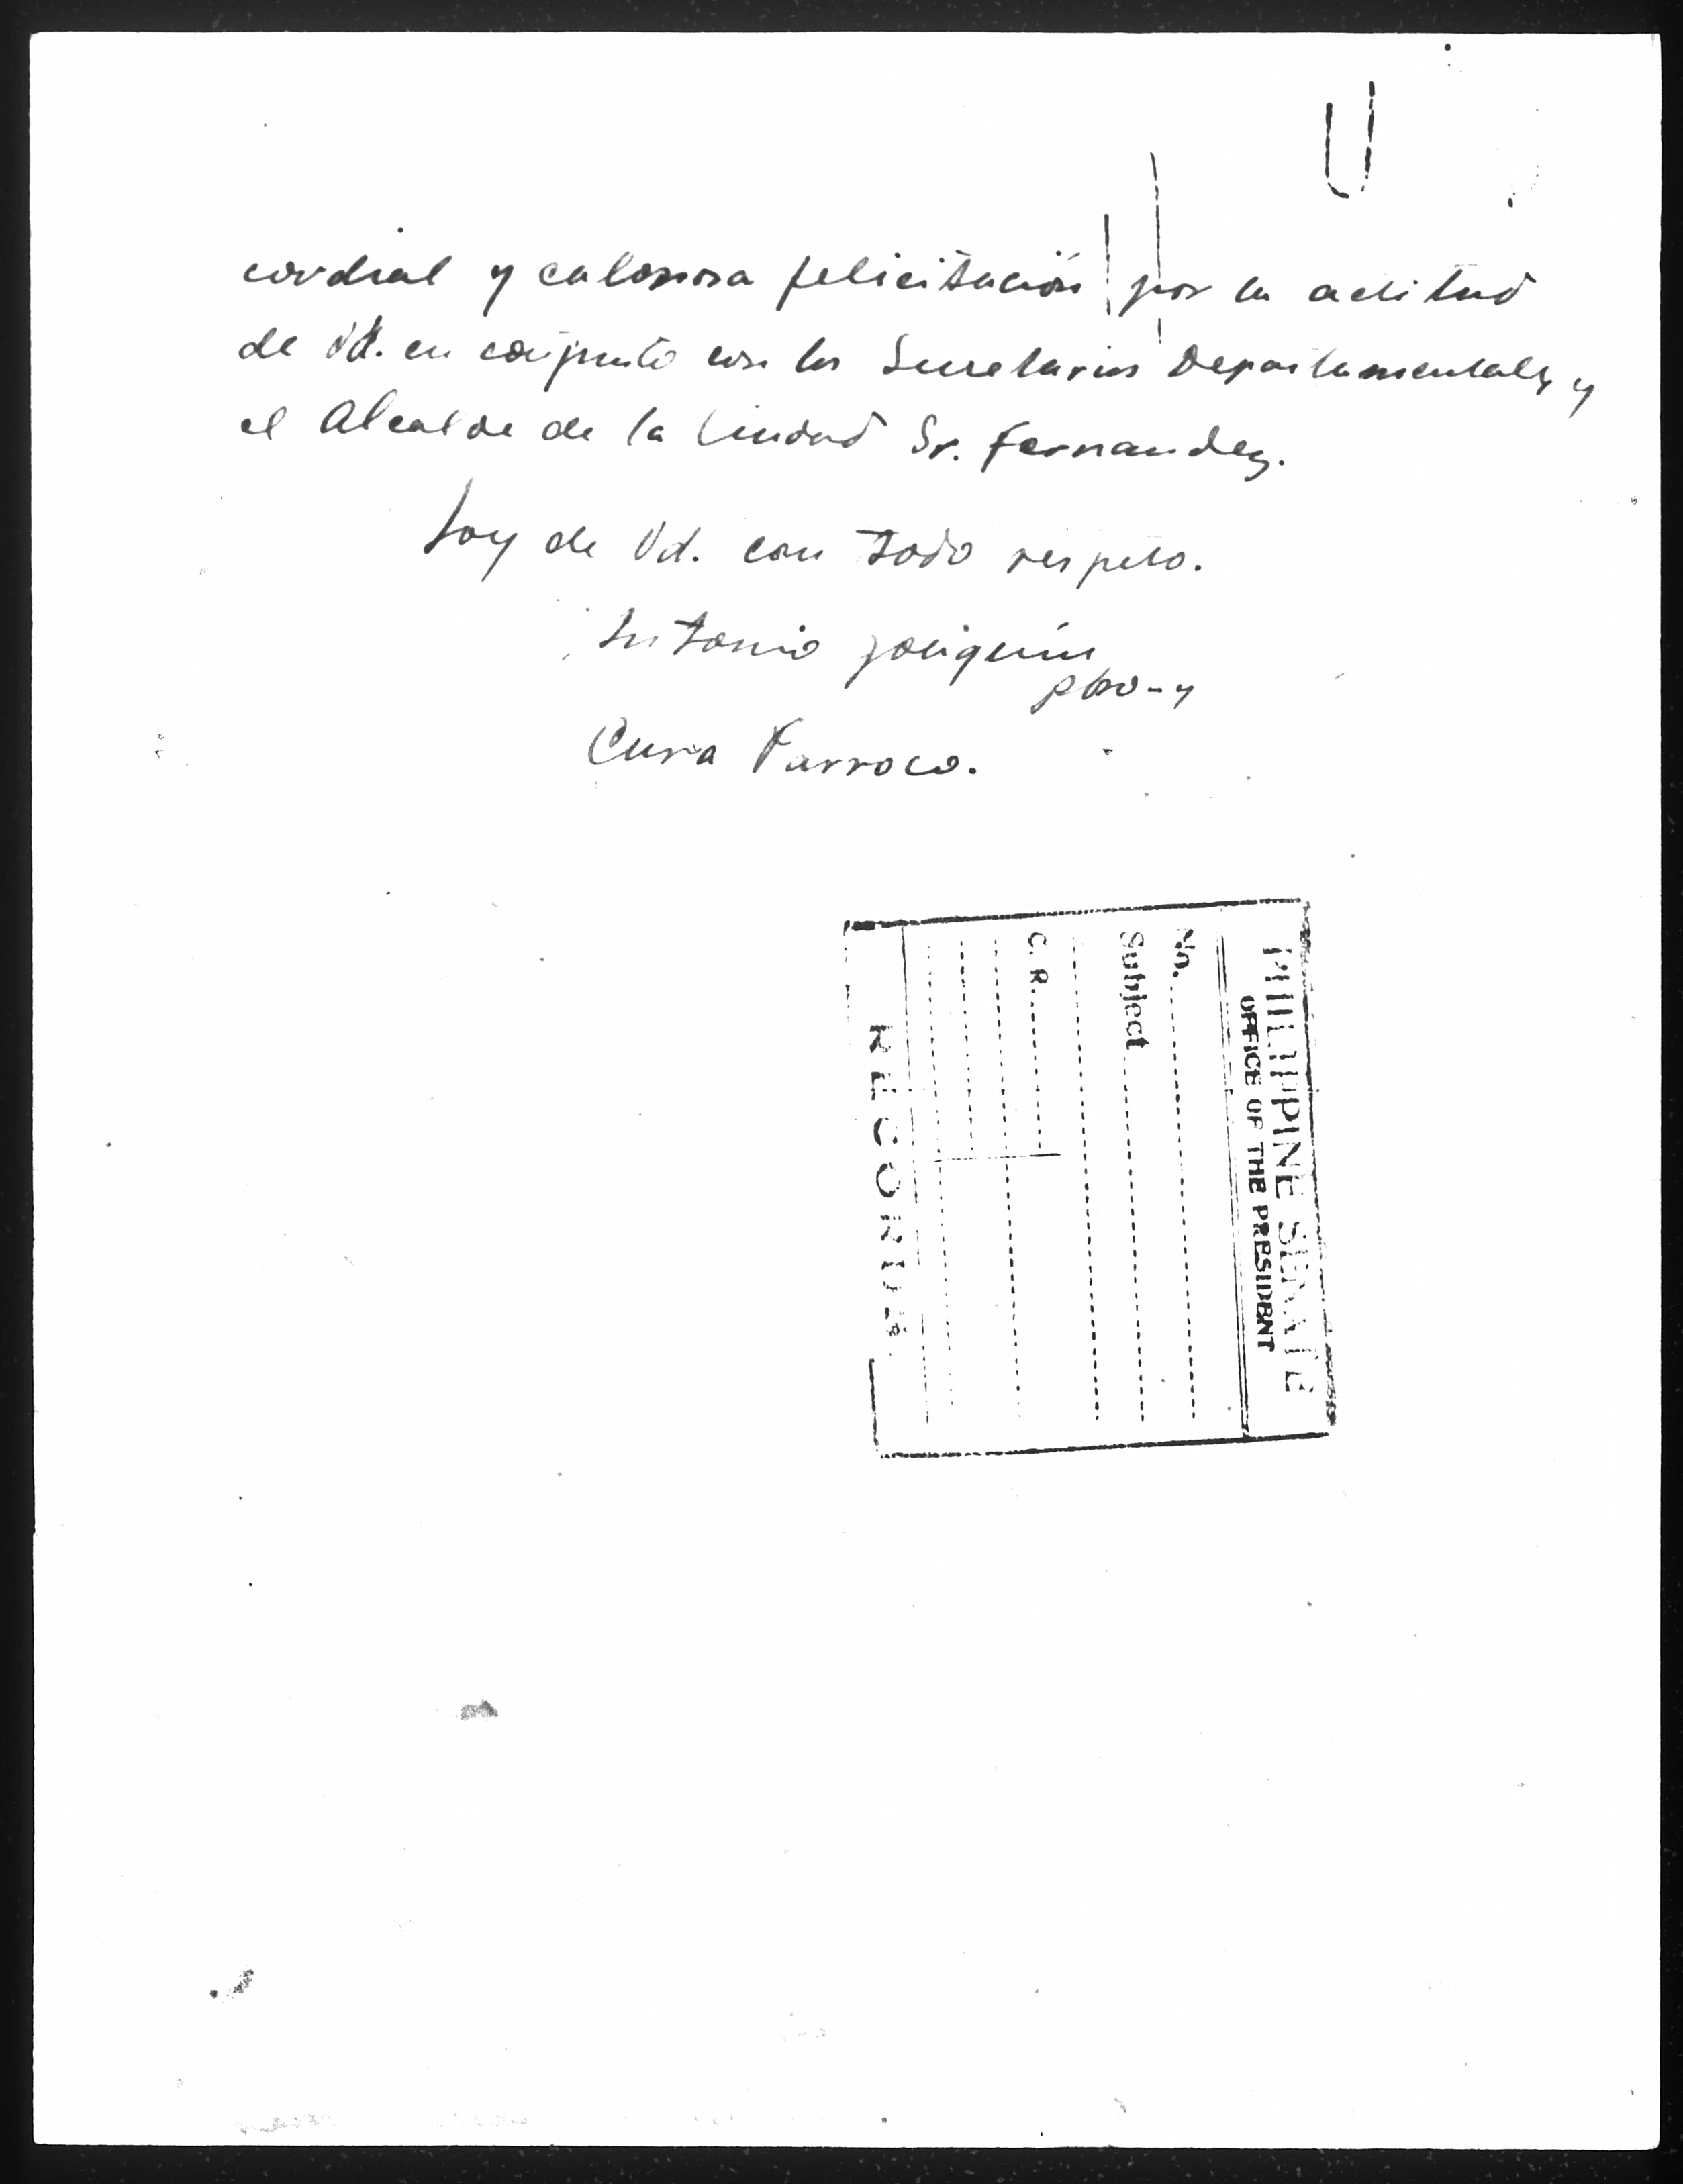 cordial y calorosa felicitación por la actitud
de Vd. en conjunto con los Secretarios Departamentales y
el Alcalde de la Ciudad Sr. Fernandez.
Soy de Vd. con todo respeto.
Antonio Joaiquín
pbro-y
Cura Parroco.
PHILIPPINE SENATE
OFFICE OF THE PRESIDENT
No.
Subject
C. R.
RECORDS